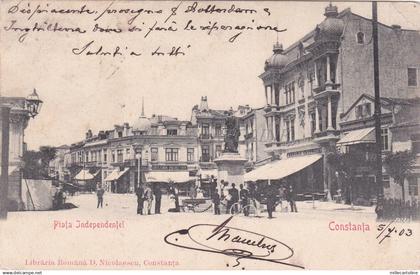 Dispiacente, proseguo p. Rotterdam e
Inghilterra dove si farà la riparazione
Saluti a tutti
Piața Independenței
Constanța
5/7/03
Marcellus
Librăria Română D. Nicolaescu, Constanța